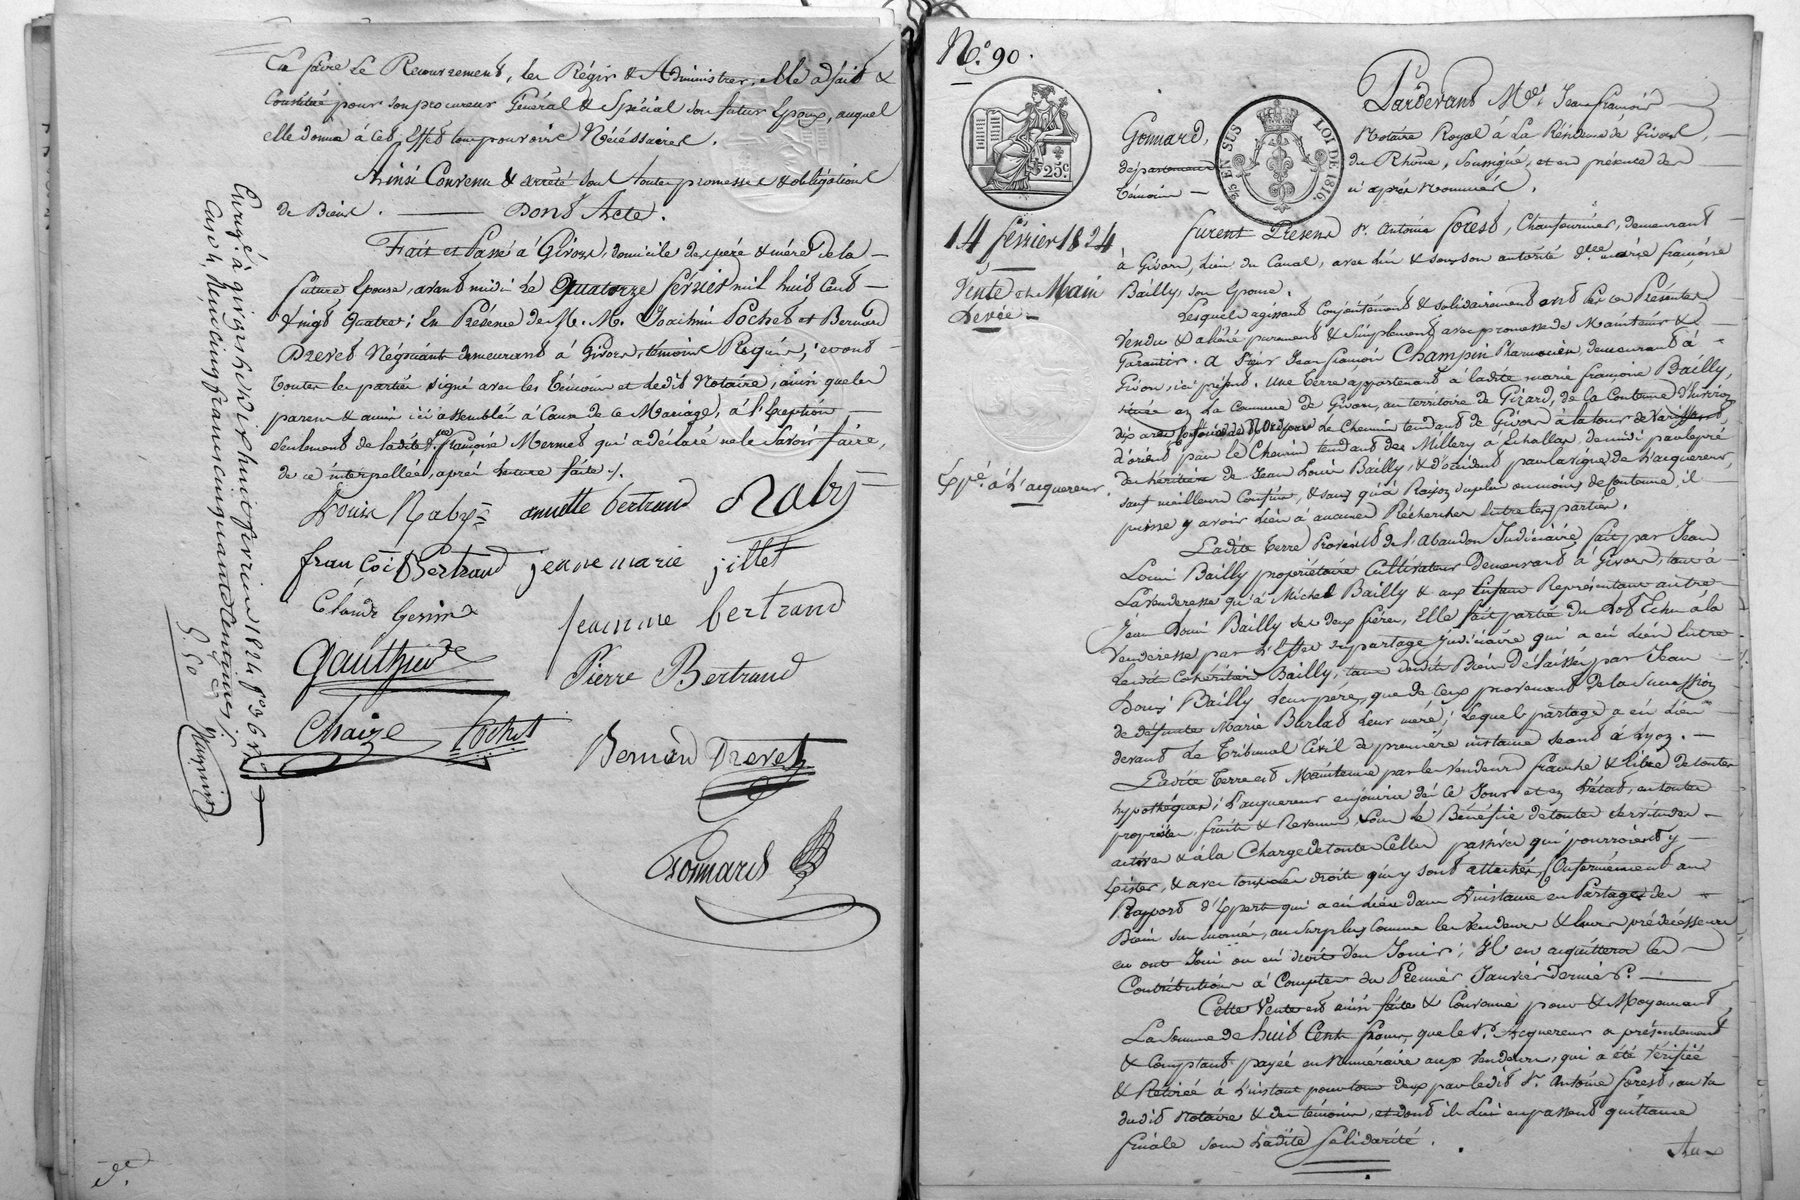 En faire le Recouvrement, les Régir & Administrer, elle a fait &
Constitué pour son procureur Général & Spécial son futur Epoux, auquel
elle donne à cet Effet tous pouvoirs Nécéssaires.
Ainsi Convenu & arrêté sous toutes promesses & obligations
de Biens. Dont Acte.
Fait et Passé à Givors, domicile des père & mère de la
future Epouse, avant midi le Quatorze fevrier mil huit Cent
vingt quatre; En Présence de M. M. Pochet et Bernard
Drevet Négociants demeurans à Givors, témoins Requis, & ont
toutes les parties signé avec les Témoins et ledit Notaire, ainsi que les
parens & amis ici assemblés à Cause de ce Mariage, à l'Exception
seulement de ladite françoise Mermet qui a déclaré ne le Savoir faire,
de ce interpellée, après lecture faite.
Louis Naby annette bertrand Naby
françois Bertrand jeane marie jillet
Claude
jeanne bertrand
Gauthier
Pierre Bertrand
Chaize Pochet
Bernard Drevet
Gonnard
Enregé à givors le dix huit fevrier 1824 fo 36
Case 4, Reçu cinq francs cinquante centimes
5.50
N.o 90.
25c
EN SUS
LOI DE 1816
14 février 1824
Vente et Main
Levée
Expé à l'acquereur.
Pardevant Me. Jean françois
Gonnard, Notaire Royal à La Résidence de Givors,
département du Rhône, soussigné, et en présence des
témoins ci après Nommés.
furent Présens Sr. Antoine forest, Chaufournier, demeurant
à Givors, lieu du Canal, avec lui & sous son autorité De. marie françoise
Bailly, son Epouse.
Lesquels agissant Conjointement & solidairement ont par ces Présentes
Vendu & aliéné purement & Simplement avec promesse de Maintenir &
Garantir. A Sieur Jean françois Champin Pharmacien, demeurant à
Givors, ici présent. Une Terre appartenant à ladite marie françoise Bailly,
située en La Commune de Givors, au territoire de Girard, de la Contenue d'Environ
dix ares, Confinée de Nord par le Chemin tendant de Givors à la tour de Varissant,
d'orient par le Chemin tendant de Millery à Echallas, de midi par le pré
des héritiers de Jean Louis Bailly, & d'occident par la vigne de l'acquereur,
sauf meilleurs Confins, & sans qu'à Raison du plus ou moins de Contenue, il
puisse y avoir Lieu à aucunes Recherches Entre les parties.
Ladite Terre Provient de l'abandon Judiciaire fait par Jean
Louis Bailly propriétaire Cultivateur Demeurant à Givors, tant à
La venderesse qu'à Michel Bailly & aux Enfans Représentans autre
Jean Louis Bailly ses deux frères, Elle fait partie du Lot Echu à la
Venderesse par l'Effet du partage Judiciaire qui a eu Lieu Entre
lesdits Cohéritiers Bailly, tant desdits Biens Délaissés par Jean
Louis Bailly Leur père, que de Ceux provenant de la Succession
de défunte Marie Burlat leur mère; Lequel partage a eu Lieu
devant Le Tribunal Civil de première instance séant à Lyon.
Ladite Terre est Maintenue par les Vendeurs franche & libre de toutes
hypothèques; L'acquereur en jouira dès ce Jour et en L'état, en toutes
propriétés, fruits & Revenus, sous le Bénéfice de toutes servitudes
actives & à la Charge de toutes Celles passives qui pourroient y
Exister, & avec tous les droits qui y sont attachés, Conformément au
Rapport d'Expert qui a eu Lieu dans l'instance en Partage des
Biens sus nommés, au Surplus Comme les Vendeurs & leurs prédécesseurs
en ont Joui ou eu droit d'en Jouir; Il en acquittera les
Contributions à Compter du Premier Janvier dernier.
Cette Vente est ainsi faite & Convenue pour & Moyennant
La Somme de huit Cents francs, que le Sr. Acquereur a présentement
& Comptant payée en Numéraire aux Vendeurs, qui a été Vérifiée
& Retirée à l'instant pour tous deux par ledit Sr. Antoine forest, au vu
dudit Notaire & des témoins, et dont ils Lui en passent quittance
finale sous Ladite Solidarité.
Aux